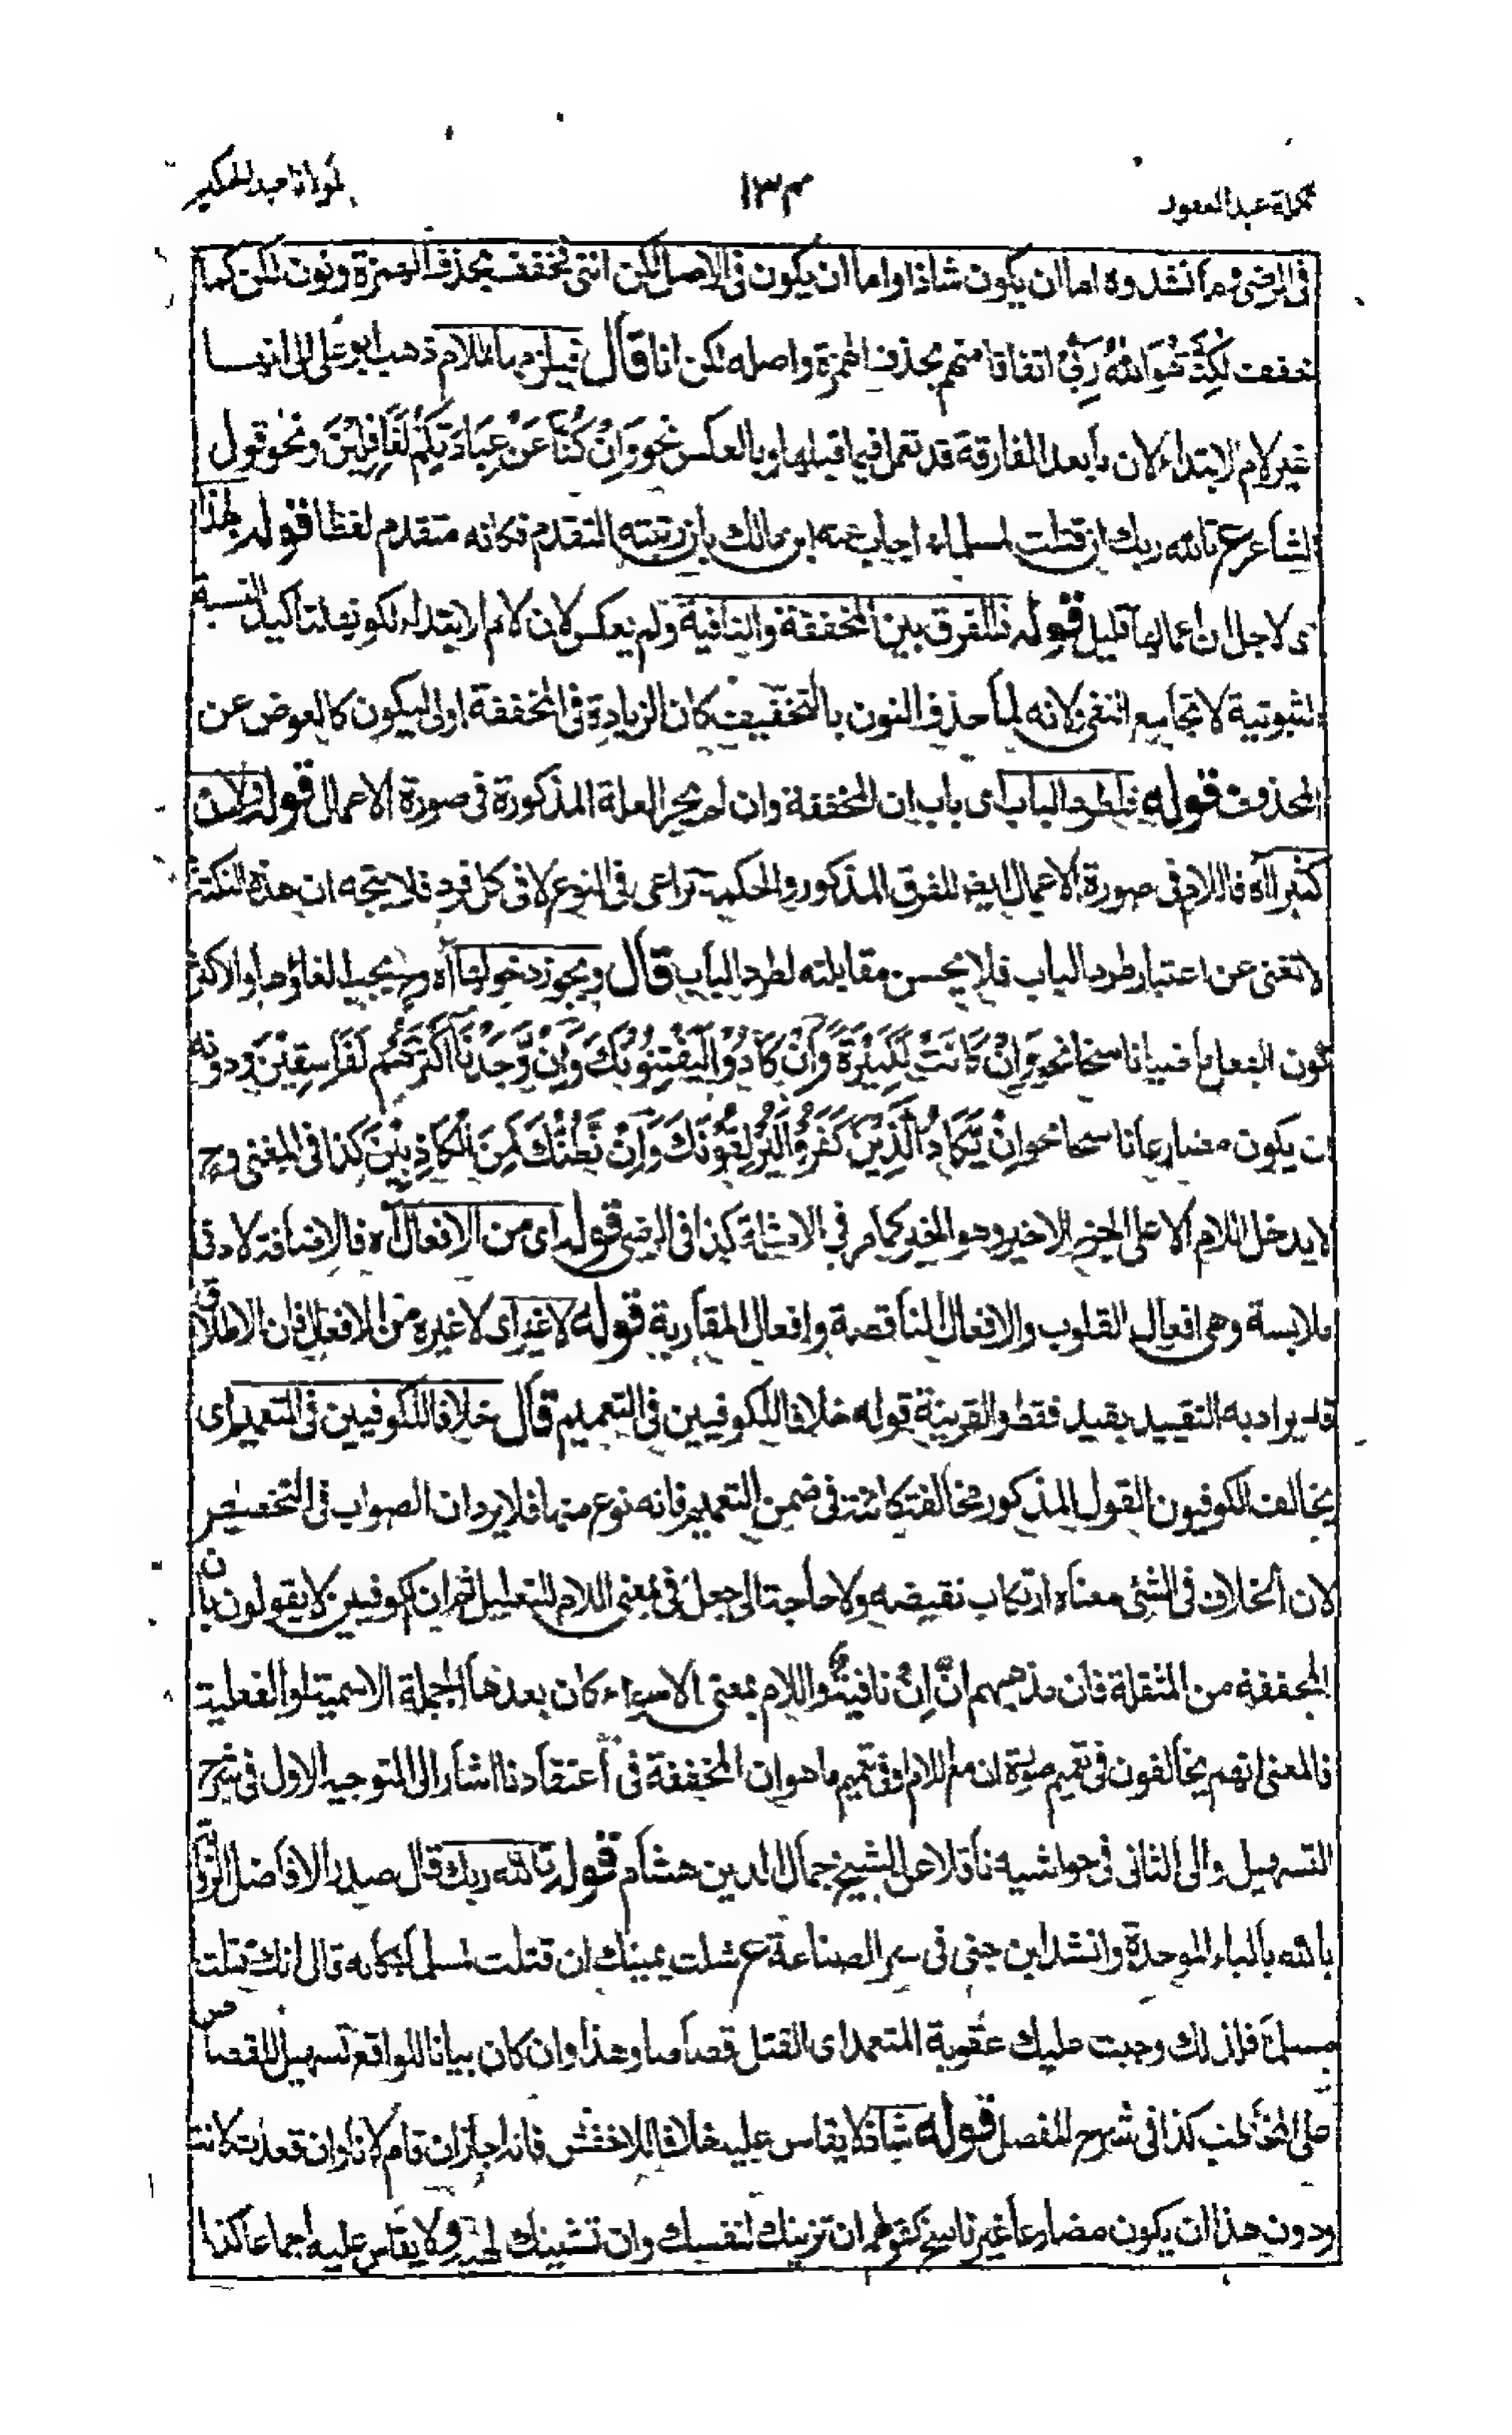 تكملة عبد الغفور
١٣٤
لمولانا عبد الحكيم
فى الرضى وما نشدوه اما ان يكون شاذا واما ان يكون فى الاصل لكن اننى فخفف بحذف الهمزة ونون لكن كما
خففت لٰكِنَّا هُوَ اللّٰهُ رَبِّىْ اتفاقا منهم بحذف الهمزة واصله لكن انا قال فيلزمها اللام ذهب ابو على الى انها
غير لام الابتداء لان ما بعد الفارقة قد تعمل فيما قبلها وبالعكس نحو وَاِنْ كُنَّا عَنْ عِبَادَتِكُمْ لَغَافِلِيْنَ ونحو قول
الشاعر ع تالله ربك ان قتلت لمسلما اجاب عنه ابن مالك بان رتبته التقدم فكانه متقدم لفظا قوله لهذا
اى لاجل ان اعمالها قليل قوله للفرق بين المخففة والنافية ولم يعكس لان لام الابتداء لكونها لتاكيد النسبة
الثبوتية لا تجامع النفى ولانه لما حذف النون بالتخفيف كان الزيادة فى المخففة اولى ليكون كالعوض عن
المحذوف قوله فلطرد الباب اى باب ان المخففة وان لم يجر العلة المذكورة فى صورة الاعمال قوله ولان
كثيرا اه فاللام فى صورة الاعمال ايضا للفرق المذكور والحكمة تراعى فى النوع لا فى كل فرد فلا يتجه ان هذه النكتة
لا تغنى عن اعتبار طرد الباب فلا يحسن مقابلته لطرد الباب قال ويجوز دخولها اه و يجب الغاؤها والاكثر
كون الفعل ماضيا ناسخا نحو وَاِنْ كَانَتْ لَكَبِيْرَةً وَاِنْ كَادُوْا لَيَفْتِنُوْنَكَ وَاِنْ وَّجَدْنَا اَكْثَرَهُمْ لَفَاسِقِيْنَ ودونه
ان يكون مضارعا ناسخا نحو اِنْ يَّكَادُ الَّذِيْنَ كَفَرُوْا لَيُزْلِقُوْنَكَ وَاِنْ نَّظُنُّكَ لَمِنَ الْكَاذِبِيْنَ كذا فى المغنى وح
لا يدخل اللام الا على الجزء الاخير وهو الخبر كما مر فى الامثلة كذا فى الرضى قوله اى من الافعال اه فالاضافة لادنى
ملابسة وهى افعال القلوب والافعال الناقصة وافعال المقاربة قوله لا غير اى لا غيره من الافعال فان الاطلاق
قد يراد به التقييد بقيد فقط والقرينة قوله خلافا للكوفيين فى التعميم قال خلافا للكوفيين فى التعميم اى
يخالف الكوفيون القول المذكور مخالفة كائنة فى ضمن التعميم فانه نوع منها فلا يرد ان الصواب فى التخصيص
لان الخلاف فى الشئ معناه ارتكاب نقيضه ولا حاجة الى جعل فى بمعنى اللام للتعليل ثم ان الكوفيين لا يقولون بان
المخففة من المثقلة فان مذهبهم انّ اِنْ نافية واللام بمعنى الا سواء كان بعدها الجملة الاسمية او الفعلية
فالمعنى انهم يخالفون فى تعميم صورة ان مع اللام وفى تعميم ما هو ان المخففة فى اعتقادنا اشار الى التوجيه الاول فى شرح
التسهيل والى الثانى فى حواشيه ناقلا عن الشيخ جمال الدين هشام قوله تالله ربك قال صدر الافاضل الرواية
بالله بالباء الموحدة وانشد ابن جنى فى سر الصناعة ع شلت يمينك ان قتلت لمسلما كانه قال انك قتلت
مسلما فلذلك وجبت عليك عقوبة المتعمد اى القتل قصاصا وهذا وان كان بيانا للواقع تسهيل للقصاص
على المخاطب كذا فى شرح المفصل قوله شاذ لا يقاس عليه خلافا للاخفش فانه اجاز ان قام لانا وان قعدت لانت
ودون هذا ان يكون مضارعا غير ناسخ كقولهم ان تزينك لنفسك وان تشينك لهيه ولا يقاس عليه اجماعا كذا